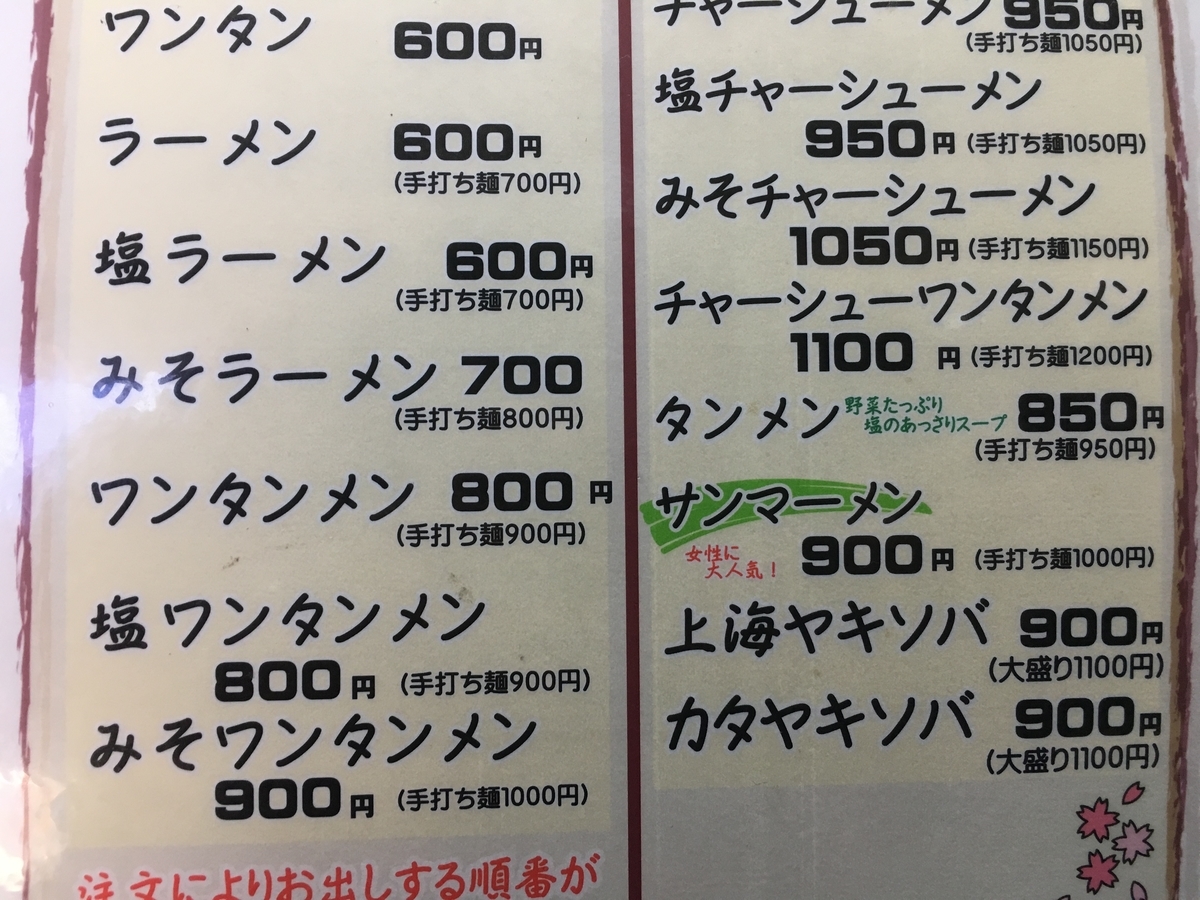 ワンタン 600円
ラーメン 600円
(手打ち麺700円)
塩ラーメン 600円
(手打ち麺700円)
みそラーメン 700
(手打ち麺800円)
ワンタンメン 800円
(手打ち麺900円)
塩ワンタンメン
800円 (手打ち麺900円)
みそワンタンメン
900円 (手打ち麺1000円)
注文によりお出しする順番が
チャーシューメン 950円
(手打ち麺1050円)
塩チャーシューメン
950円 (手打ち麺1050円)
みそチャーシューメン
1050円 (手打ち麺1150円)
チャーシューワンタンメン
1100円 (手打ち麺1200円)
タンメン 野菜たっぷり
塩のあっさりスープ 850円
(手打ち麺950円)
サンマーメン
女性に
大人気! 900円 (手打ち麺1000円)
上海ヤキソバ 900円
(大盛り1100円)
カタヤキソバ 900円
(大盛り1100円)